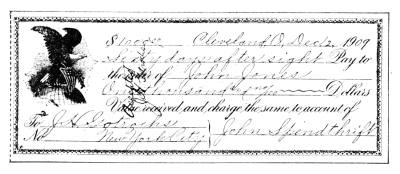 $1000.00 Cleveland O, Dec 2, 1909
Sixty days after sight Pay to
the order of John Jones
One thousand & no Dollars
Value received and charge the same to account of
To J. H. Gotrocks
No. New York City
John Spendthrift
Accepted